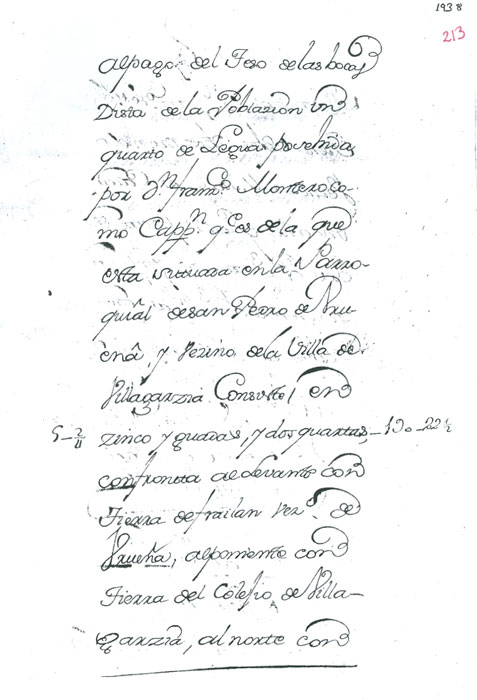 1938
213
al pago del Teso de las bocas
Dista de la Poblazion un
quarto de Legua poseida
por Dn. franco. Montero co-
mo Cappn. q.e es de la que
esta situada en la Parro-
quial de san Pedro de Uru-
eña, y Vezino de la Villa de
Villagarzia Consiste en
5-2/4 zinco yguadas, y dos quartas, -190-22½
confronta al Levante con
Tierra de froilan Vezo. de
Urueña, al poniente con
Tierra del Colegio de Villa-
garzia, al norte con